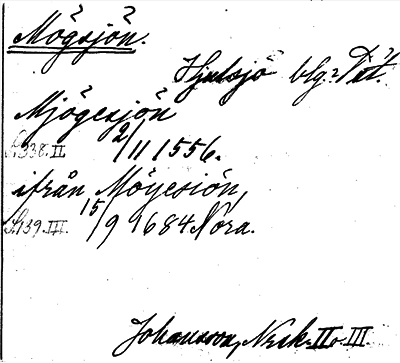 Mögsjön.
Hjulsjö blg: Vät.
Mjögesjön
S. 338. II. 2/11 1556.
ifrån Möyesiön,
S. 139. III. 15/9 9684 Nora.
Johansson, Nerk. II o. III.